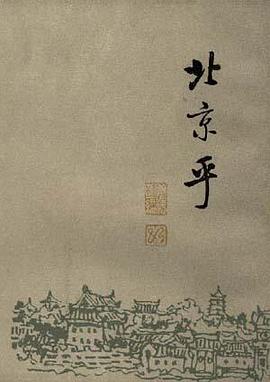 北京乎